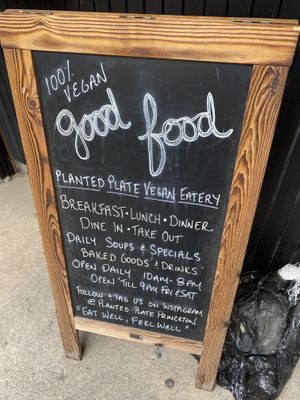 100%
VEGAN
good food
PLANTED PLATE VEGAN EATERY
BREAKFAST • LUNCH • DINNER
DINE IN • TAKE OUT
DAILY SOUPS & SPECIALS
BAKED GOODS & DRINKS
OPEN DAILY 10AM-8PM
OPEN 'TILL 9PM FRI & SAT
FOLLOW & TAG US ON INSTAGRAM
@PLANTED PLATE PRINCETON
"EAT WELL, FEEL WELL"